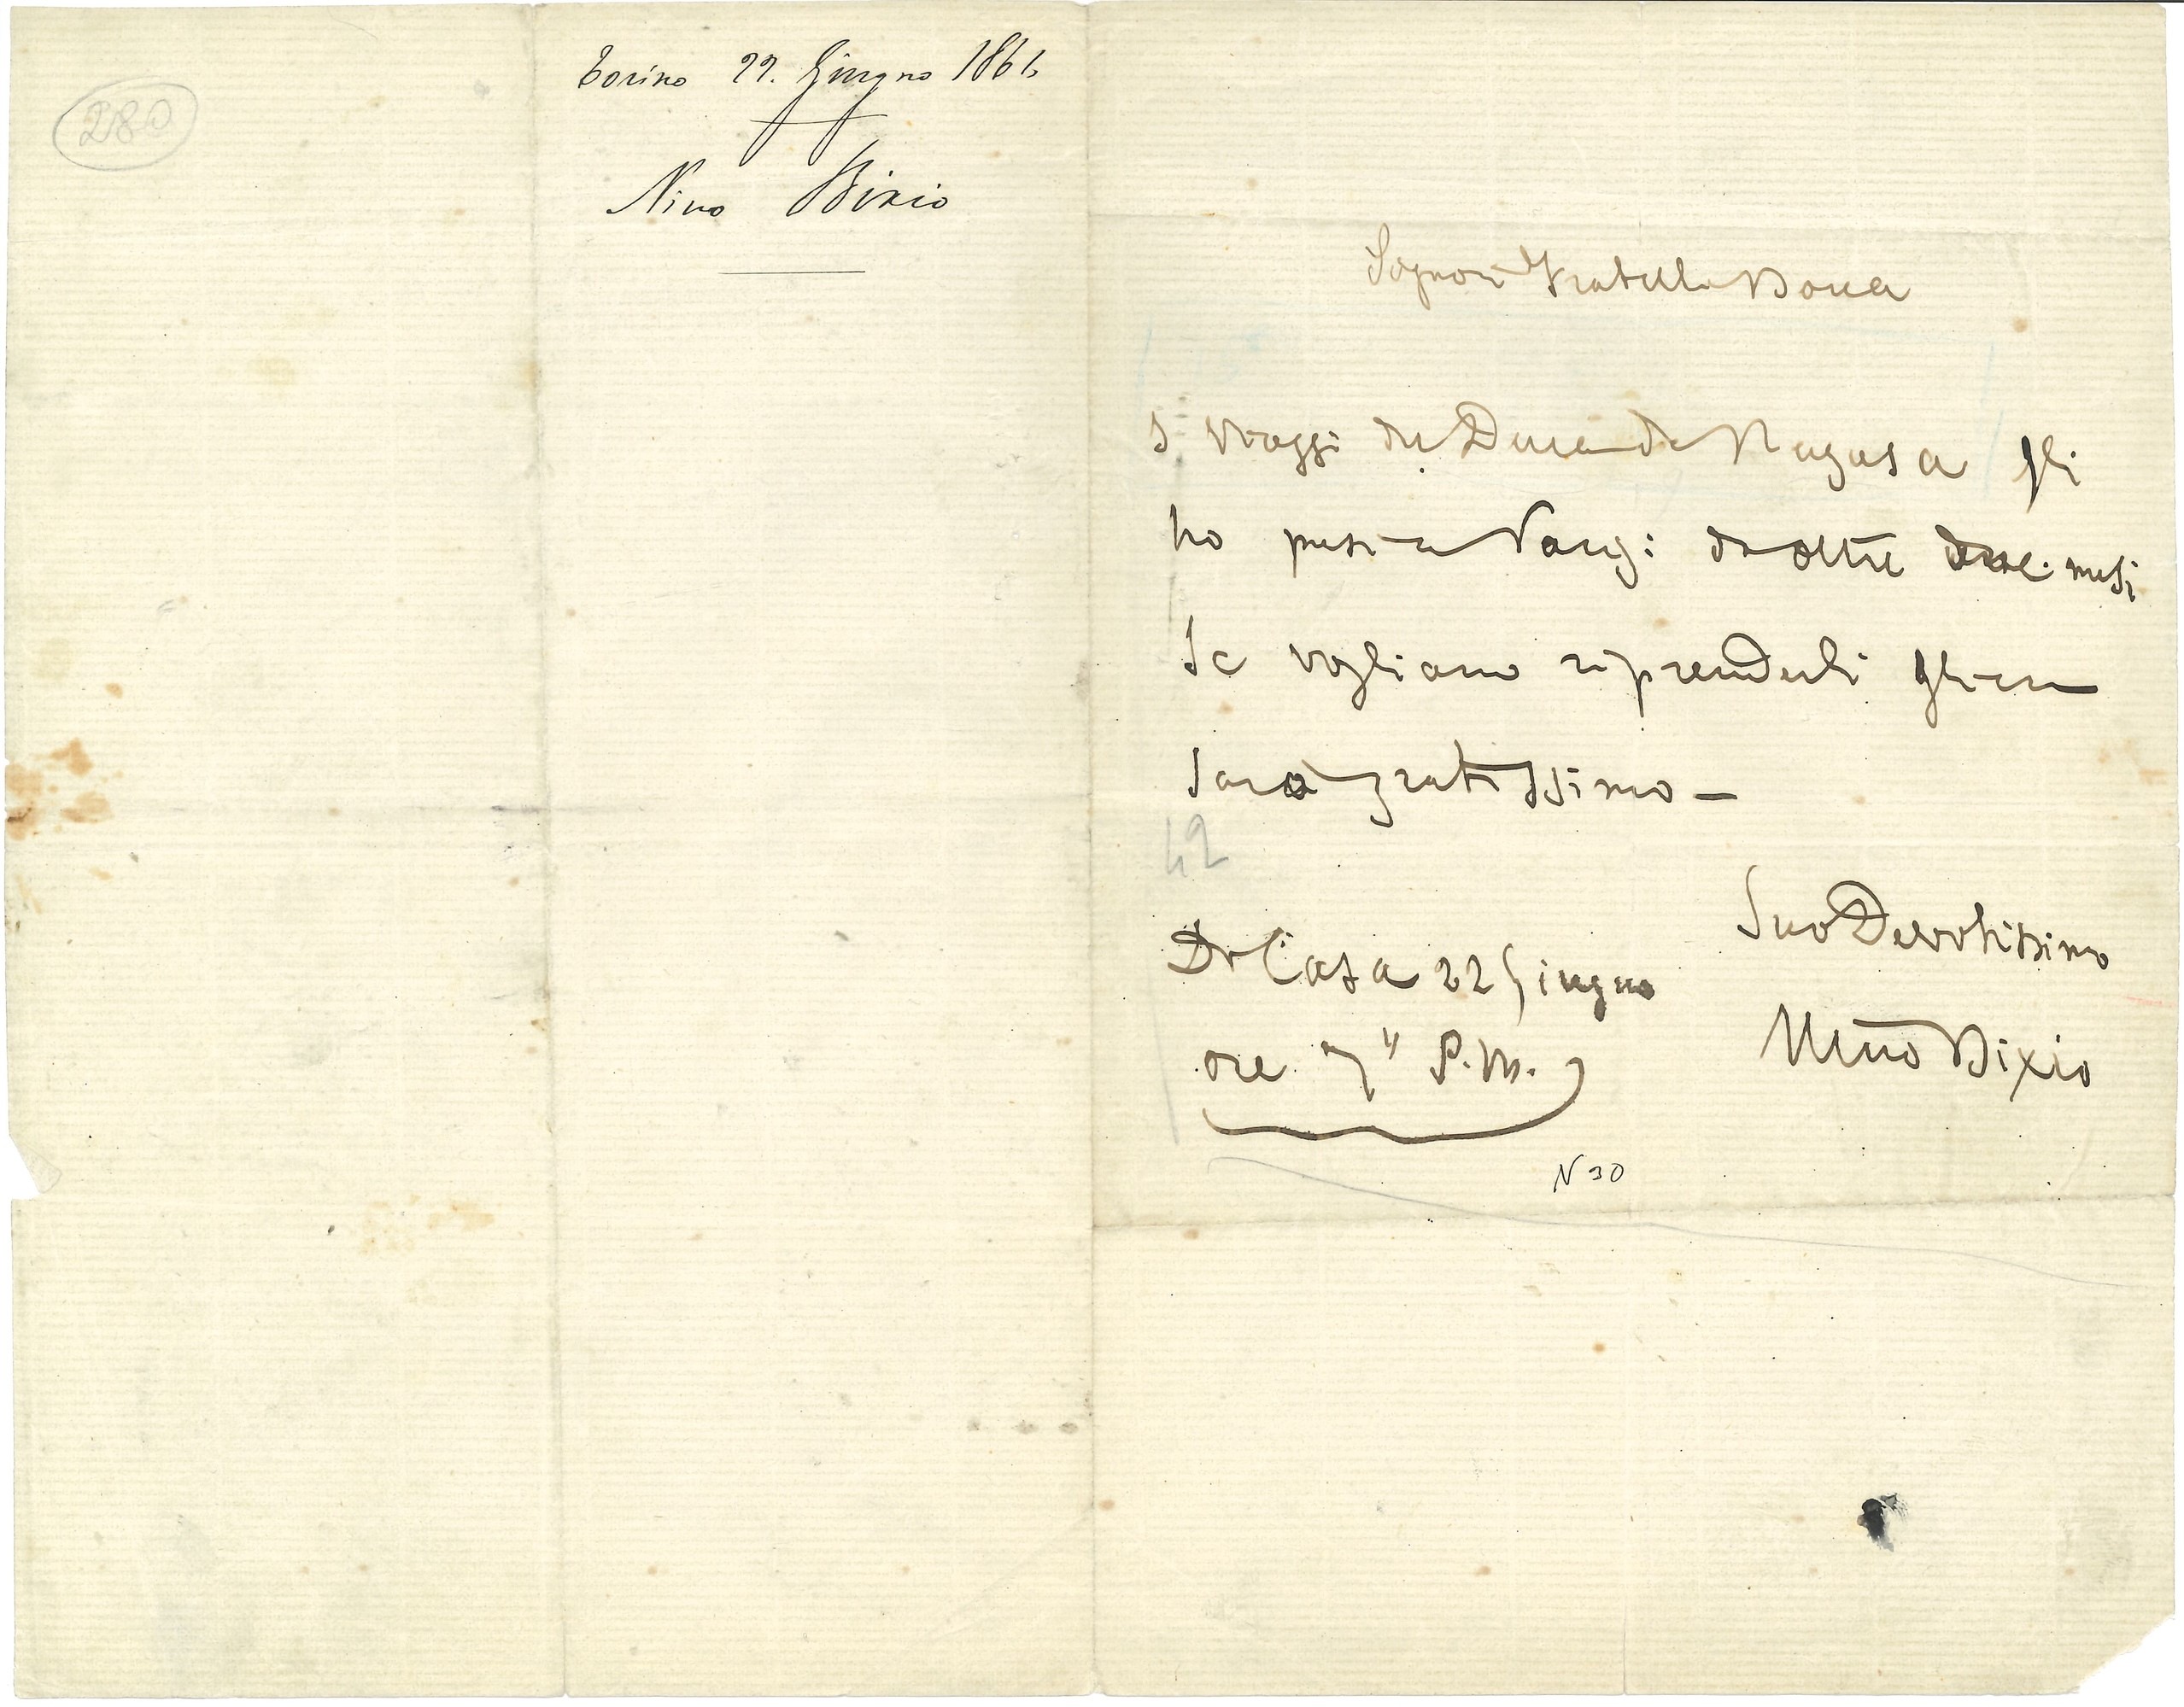 280
Torino 22. Giugno 1861
Nino Bixio
Signori Fratelli Bocca
I viaggi del Duca di Ragusa gli
ho presi a Parigi da oltre due mesi
Se vogliano riprenderli gliene
sarò gratissimo -
42
Suo Devotissimo
Di Casa 22 Giugno
Nino Bixio
ore 7" P.M.
N 30